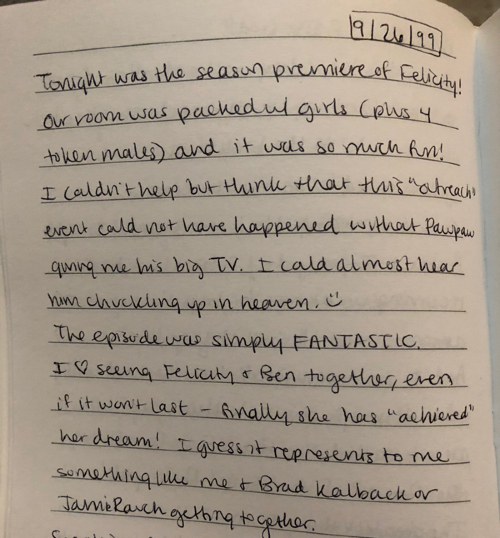 9/26/99
Tonight was the season premiere of Felicity!
Our room was packed w/ girls (plus 4
token males) and it was so much fun!
I couldn't help but think that this "outreach"
event could not have happened without Pawpaw
giving me his big TV. I could almost hear
him chuckling up in heaven. ☺
The episode was simply FANTASTIC.
I ♡ seeing Felicity & Ben together, even
if it won't last – finally she has "achieved"
her dream! I guess it represents to me
something like me & Brad Kalback or
Jamie Rauch getting together.